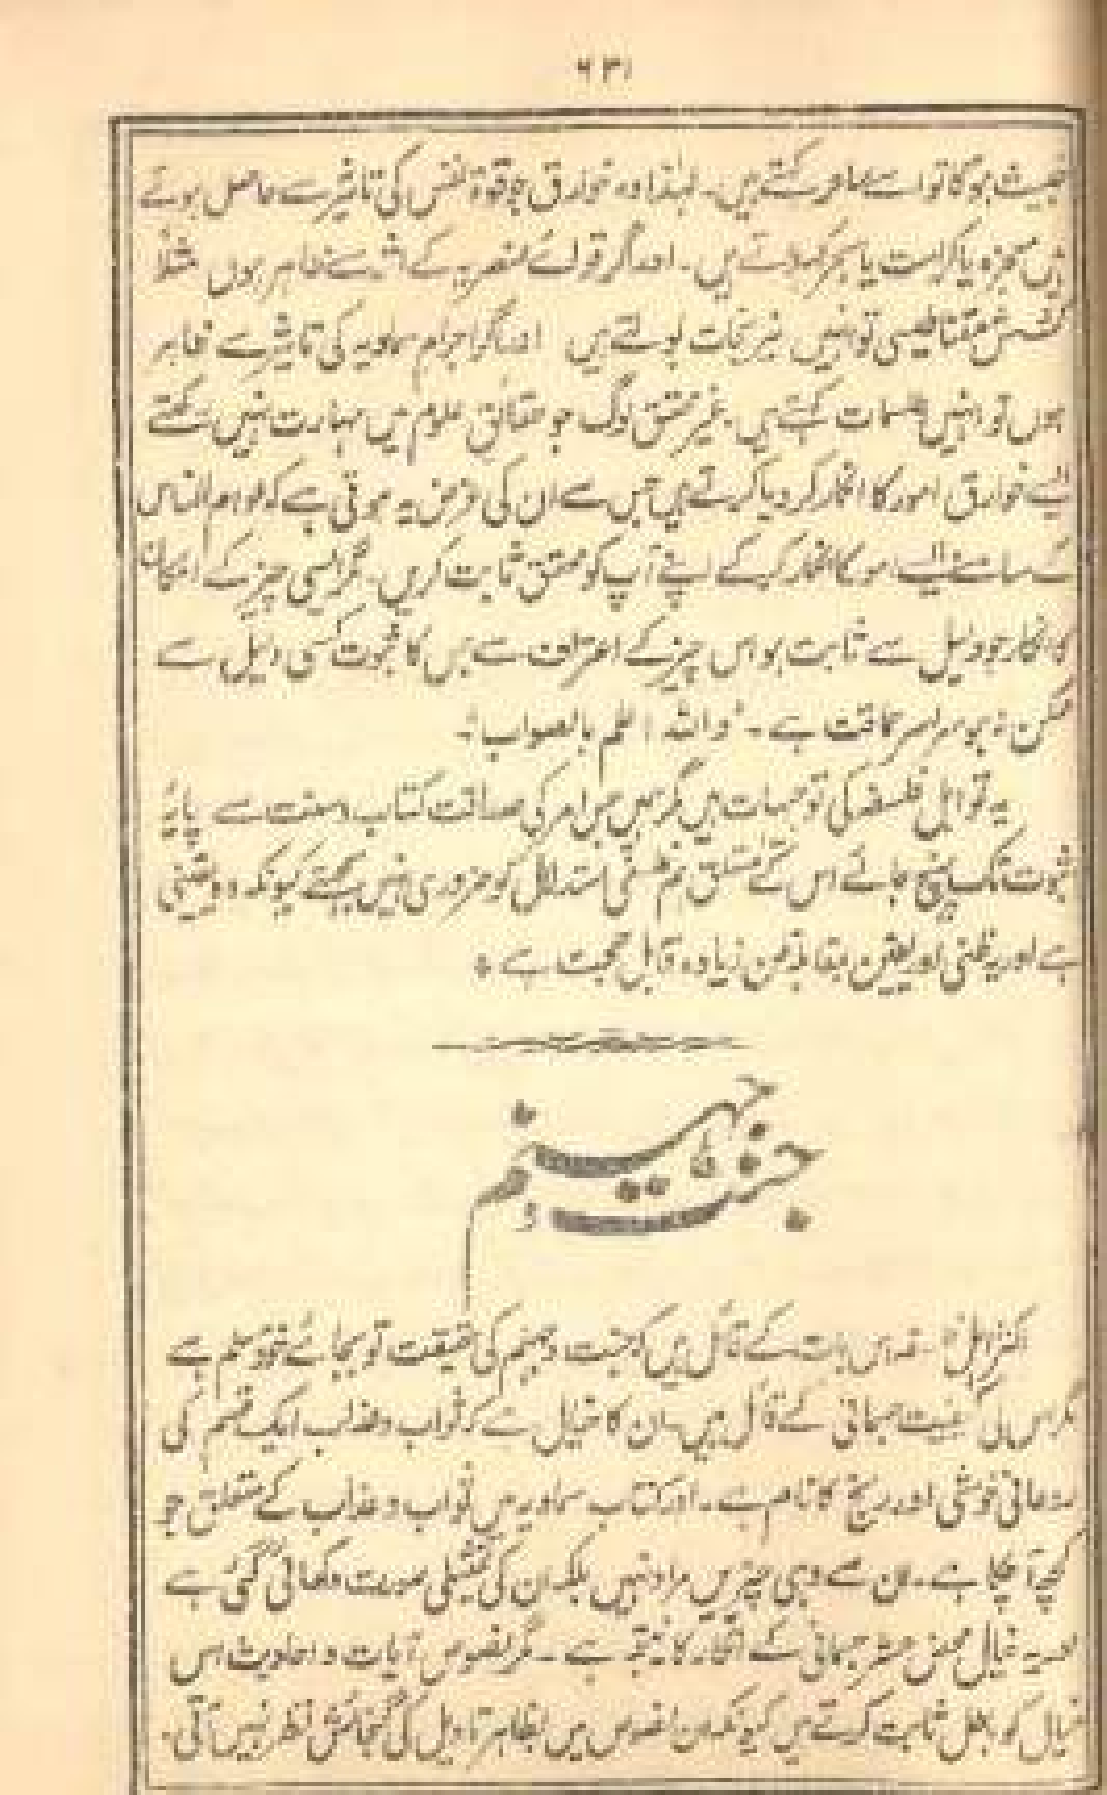 ۶۳۱
خبیث ہوگا تو اسے ساحر کہتے ہیں۔ لہٰذا وہ خوارق جو قوۃ نفس کی تاثیر سے حاصل ہوتے
ہیں معجزہ یا کرامت یا سحر کہلاتے ہیں۔ اور اگر قوائے عنصریہ کے اثر سے ظاہر ہوں مثلاً
کشش مقناطیسی تو انہیں نیرنجات بولتے ہیں اور اگر اجرام سماویہ کی تاثیر سے ظاہر
ہوں تو انہیں طلسمات کہتے ہیں۔ غیر محقق لوگ جو حقائق علوم میں مہارت نہیں رکھتے
ایسے خوارق امور کا انکار کردیا کرتے ہیں جس سے ان کی غرض یہ ہوتی ہے کہ عوام الناس
کے سامنے ایسے امور کا انکار کرکے اپنے آپ کو محقق ثابت کریں۔ مگر ایسی چیز کے امکان
کا انکار جو دلیل سے ثابت ہو اس چیز کے اعتراف سے جس کا ثبوت کسی دلیل سے
ممکن نہ ہو سراسر حماقت ہے۔ "واللہ اعلم بالصواب"۔
یہ تو اہل فلسفہ کی توجیہات ہیں مگر ہمیں جس امر کی صداقت کتاب و سنت سے پایۂ
ثبوت تک پہنچ جائے اس کے متعلق ہم فلسفی استدلال کو ضروری نہیں سمجھتے کیونکہ وہ یقینی
ہے اور یہ ظنی اور یقین بمقابلہ ظن زیادہ قابل حجت ہے *
جنت و جہنم
اکثر اہل فلسفہ اس بات کے قائل ہیں کہ جنت و جہنم کی حقیقت تو بجائے خود مسلم ہے
مگر اس کی کیفیت جسمانی کے قائل ہیں۔ ان کا خیال ہے کہ ثواب و عذاب ایک قسم کی
روحانی خوشی اور رنج کا نام ہے۔ اور کتاب سماویہ میں ثواب و عذاب کے متعلق جو
کچھ آ چکا ہے۔ ان سے وہی چیزیں مراد نہیں بلکہ ان کی تمثیلی صورت دکھائی گئی ہے
اور یہ خیال محض حشر جسمانی کے انکار کا نتیجہ ہے۔ مگر نصوص آیات و احادیث اس
خیال کو باطل ثابت کرتے ہیں کیونکہ ان نصوص میں بظاہر تاویل کی گنجائش نظر نہیں آتی۔